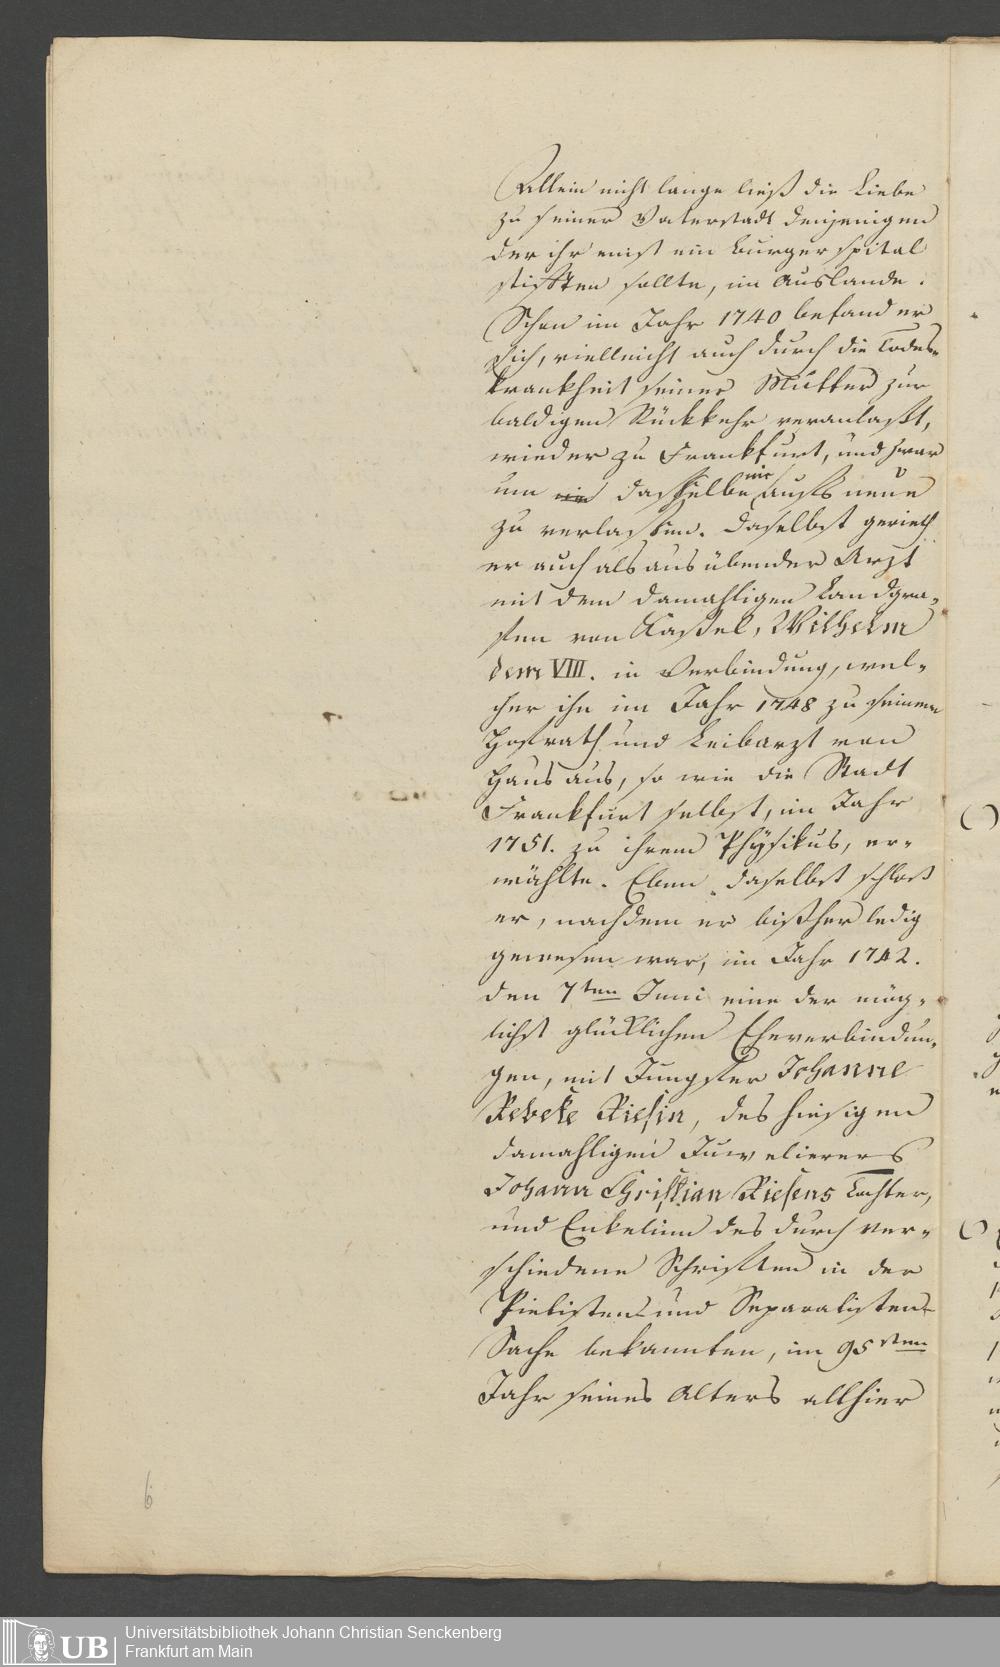 Allein nicht lange ließ die Liebe
zu seiner Vaterstadt denjenigen
der ihr einst ein Burgerspital
stifften sollte, im Auslande.
Schon im Jahr 1740 befand er
sich, vielleicht auch durch die Todes-
krankheit seiner Mutter zur
baldigen Rückkehr veranlaßt,
wieder zu Frankfurt, und zwar
um nie dasselbe nie aufs neue
zu verlassen. Daselbst gerieth
er auch als ausübender Arzt
mit dem damahligen Landgra-
fen von Kassel, Wilhelm
dem VIII. in Verbindung, wel-
cher ihn im Jahr 1748 zu seinem
Hofrath und Leibarzt von
Haus aus, so wie die Stadt
Frankfurt selbst, im Jahr
1751. zu ihrem Physikus, er-
wählte. Eben daselbst schloß
er, nachdem er bißher ledig
gewesen war, im Jahr 1742.
den 7ten Juni eine der mög-
lichst glücklichen Eheverbindun-
gen, mit Jungfer Johanne
Rebeke Riesin, des hiesigen
damahligen Juwelierers
Johann Christian Riesens Tochter,
und Enkelinn des durch ver-
schiedene Schriften in der
Pietisten- und Separatisten-
Sache bekannten, im 95sten
Jahr seines Alters allhier
6
UB
Universitätsbibliothek Johann Christian Senckenberg
Frankfurt am Main